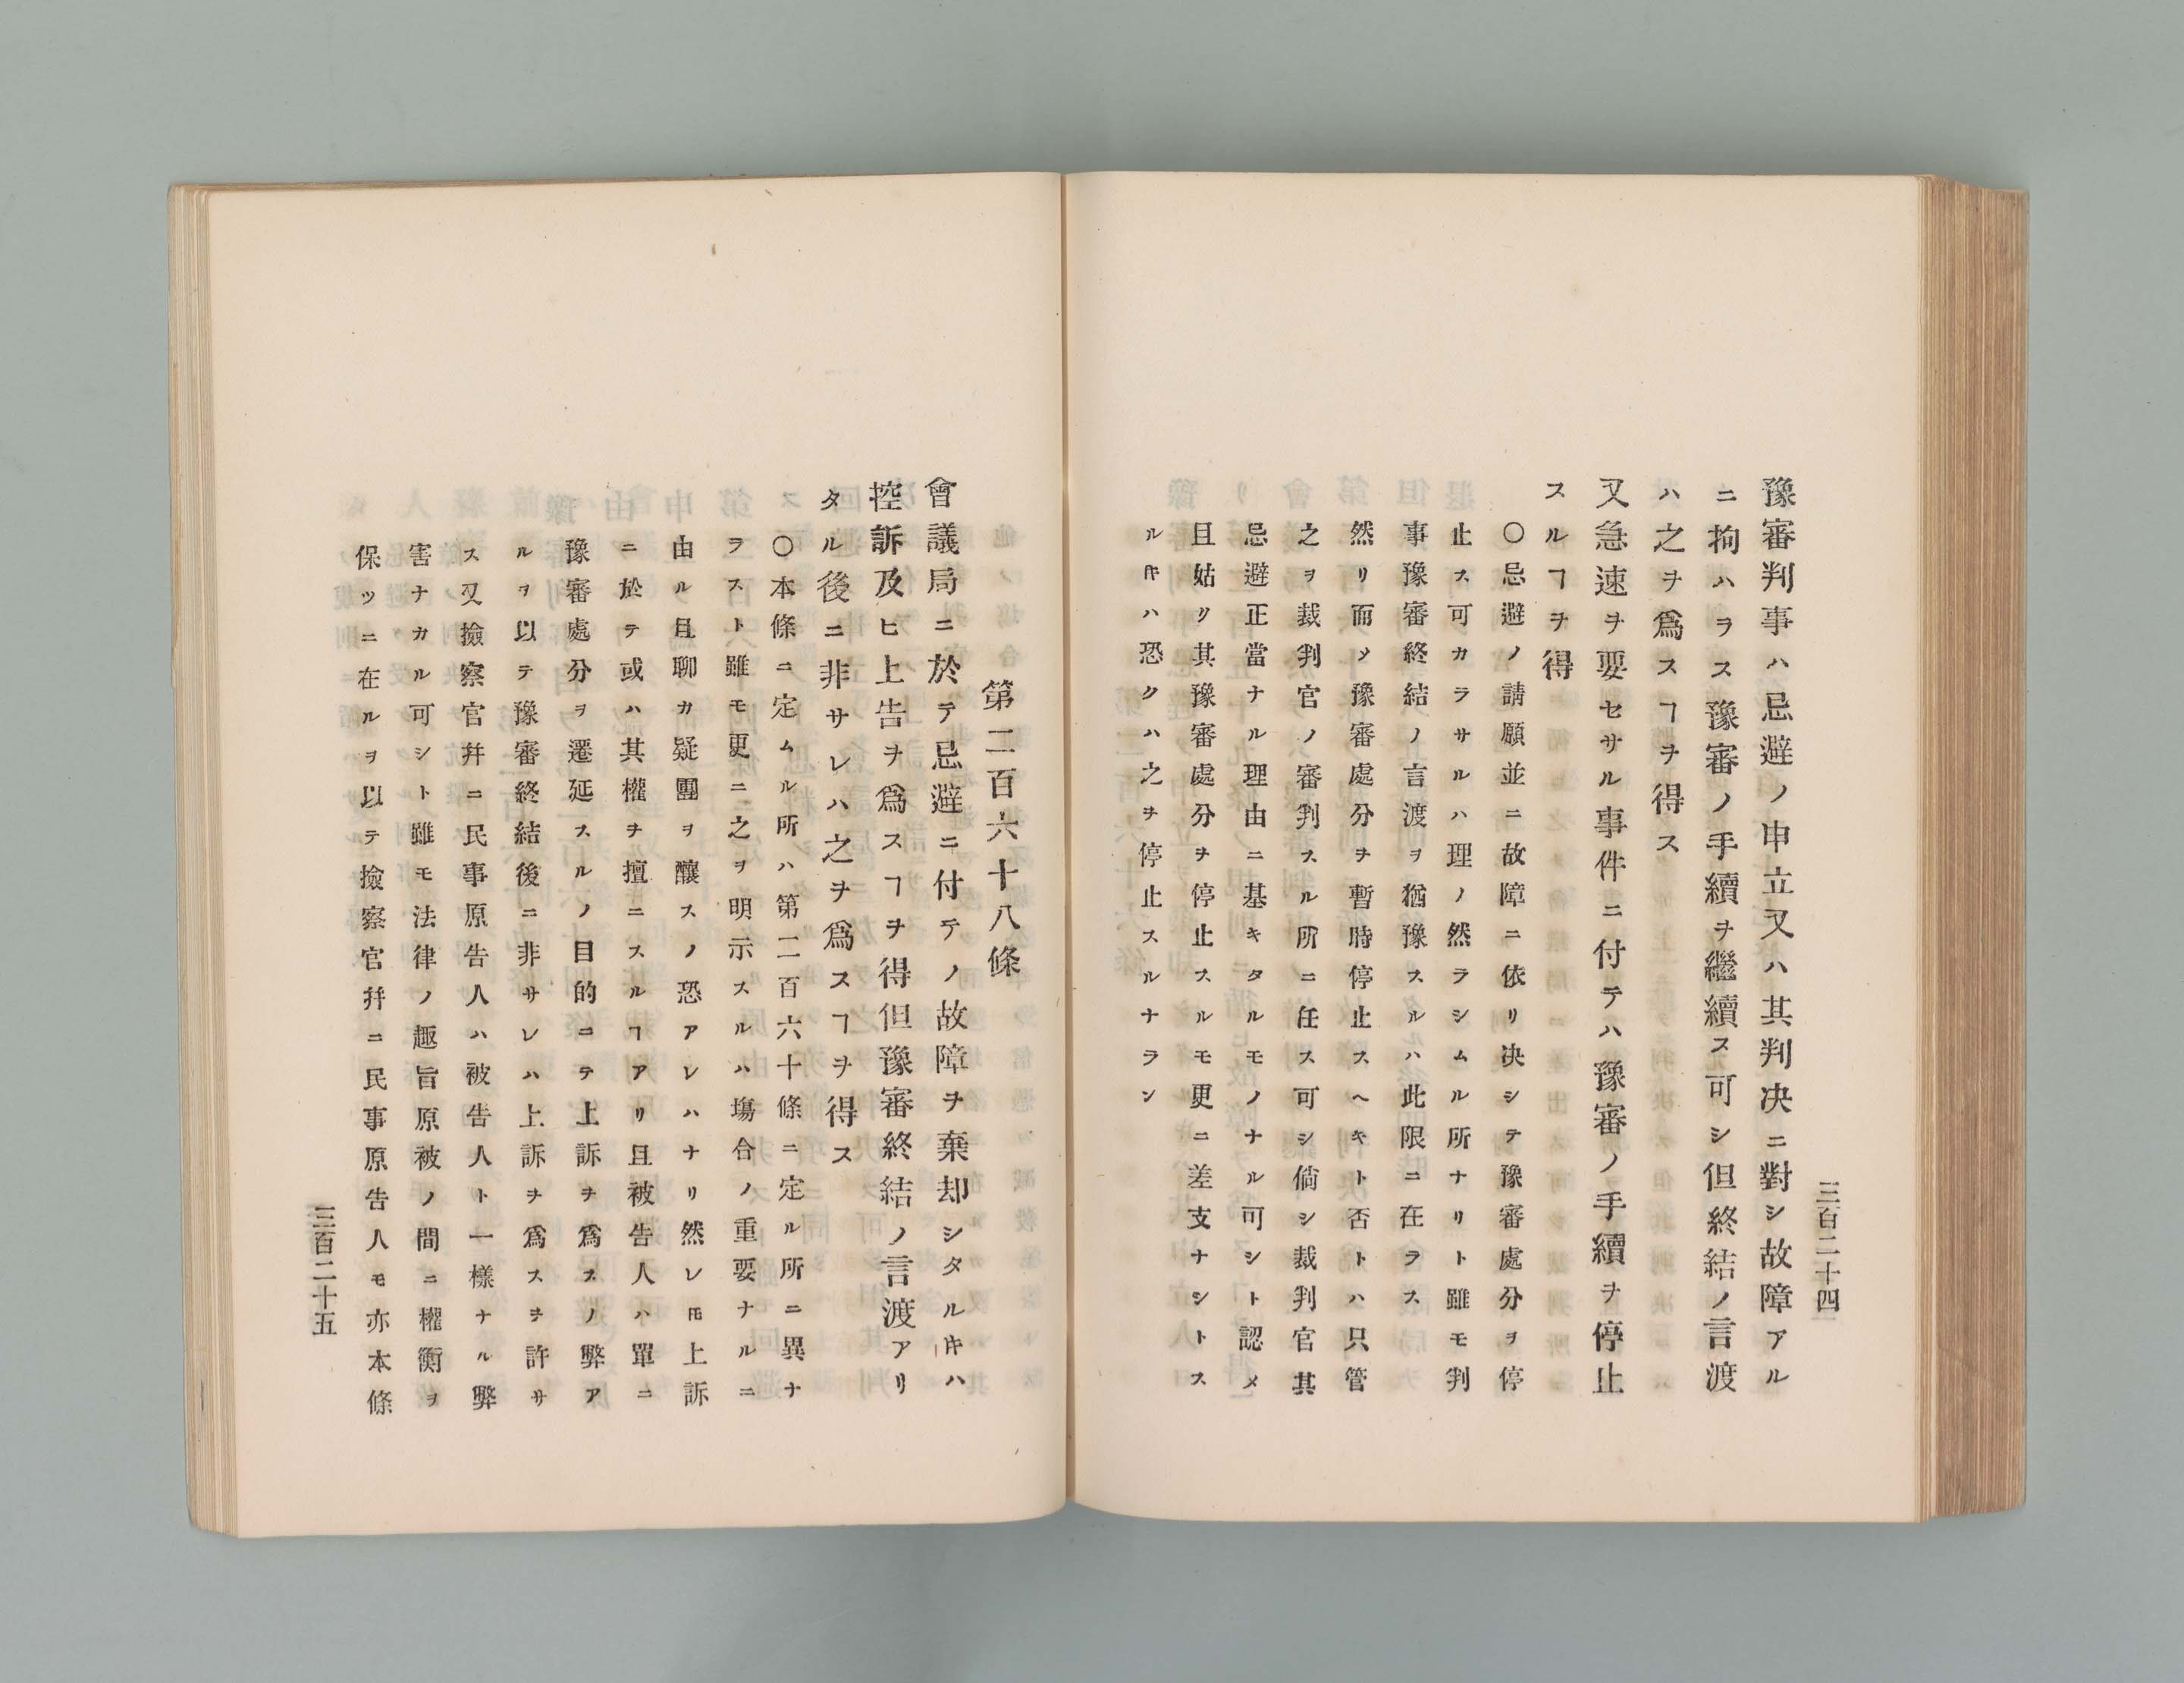 三百二十四
豫審判事ハ忌避ノ申立又ハ其判决ニ對シ故障アル
ニ拘ハラス豫審ノ手續ヲ繼續ス可シ但終結ノ言渡
ハ之ヲ爲スヿヲ得ス
又急速ヲ要セサル事件ニ付テハ豫審ノ手續ヲ停止
スルヿヲ得
〇忌避ノ請願並ニ故障ニ依リ决シテ豫審處分ヲ停
止ス可カラサルハ理ノ然ラシムル所ナリト雖モ判
事豫審終結ノ言渡ヲ猶豫スルハ此限ニ在ラス
然リ而メ豫審處分ヲ暫時停止スヘキト否トハ只管
之ヲ裁判官ノ審判スル所ニ任ス可シ倘シ裁判官其
忌避正當ナル理由ニ基キタルモノナル可シト認メ
且姑ク其豫審處分ヲ停止スルモ更ニ差支ナシトス
ルキハ恐クハ之ヲ停止スルナラン
第二百六十八條
會議局ニ於テ忌避ニ付テノ故障ヲ棄却シタルキハ
控訴及ヒ上告ヲ爲スヿヲ得但豫審終結ノ言渡アリ
タル後ニ非サレハ之ヲ爲スヿヲ得ス
〇本條ニ定ムル所ハ第二百六十條ニ定ル所ニ異ナ
ラスト雖モ更ニ之ヲ明示スルハ塲合ノ重要ナルニ
由ル且聊カ疑團ヲ釀スノ恐アレハナリ然レ𪜈上訴
ニ於テ或ハ其權ヲ擅ニスルヿアリ且被告人ハ單ニ
豫審處分ヲ遷延スルノ目的ニテ上訴ヲ爲スノ弊ア
ルヲ以テ豫審終結後ニ非サレハ上訴ヲ爲スヲ許サ
ス又撿察官幷ニ民事原告人ハ被告人ト一樣ナル弊
害ナカル可シト雖モ法律ノ趣旨原被ノ間ニ權衡ヲ
保ツニ在ルヲ以テ撿察官幷ニ民事原告人モ亦本條
三百二十五